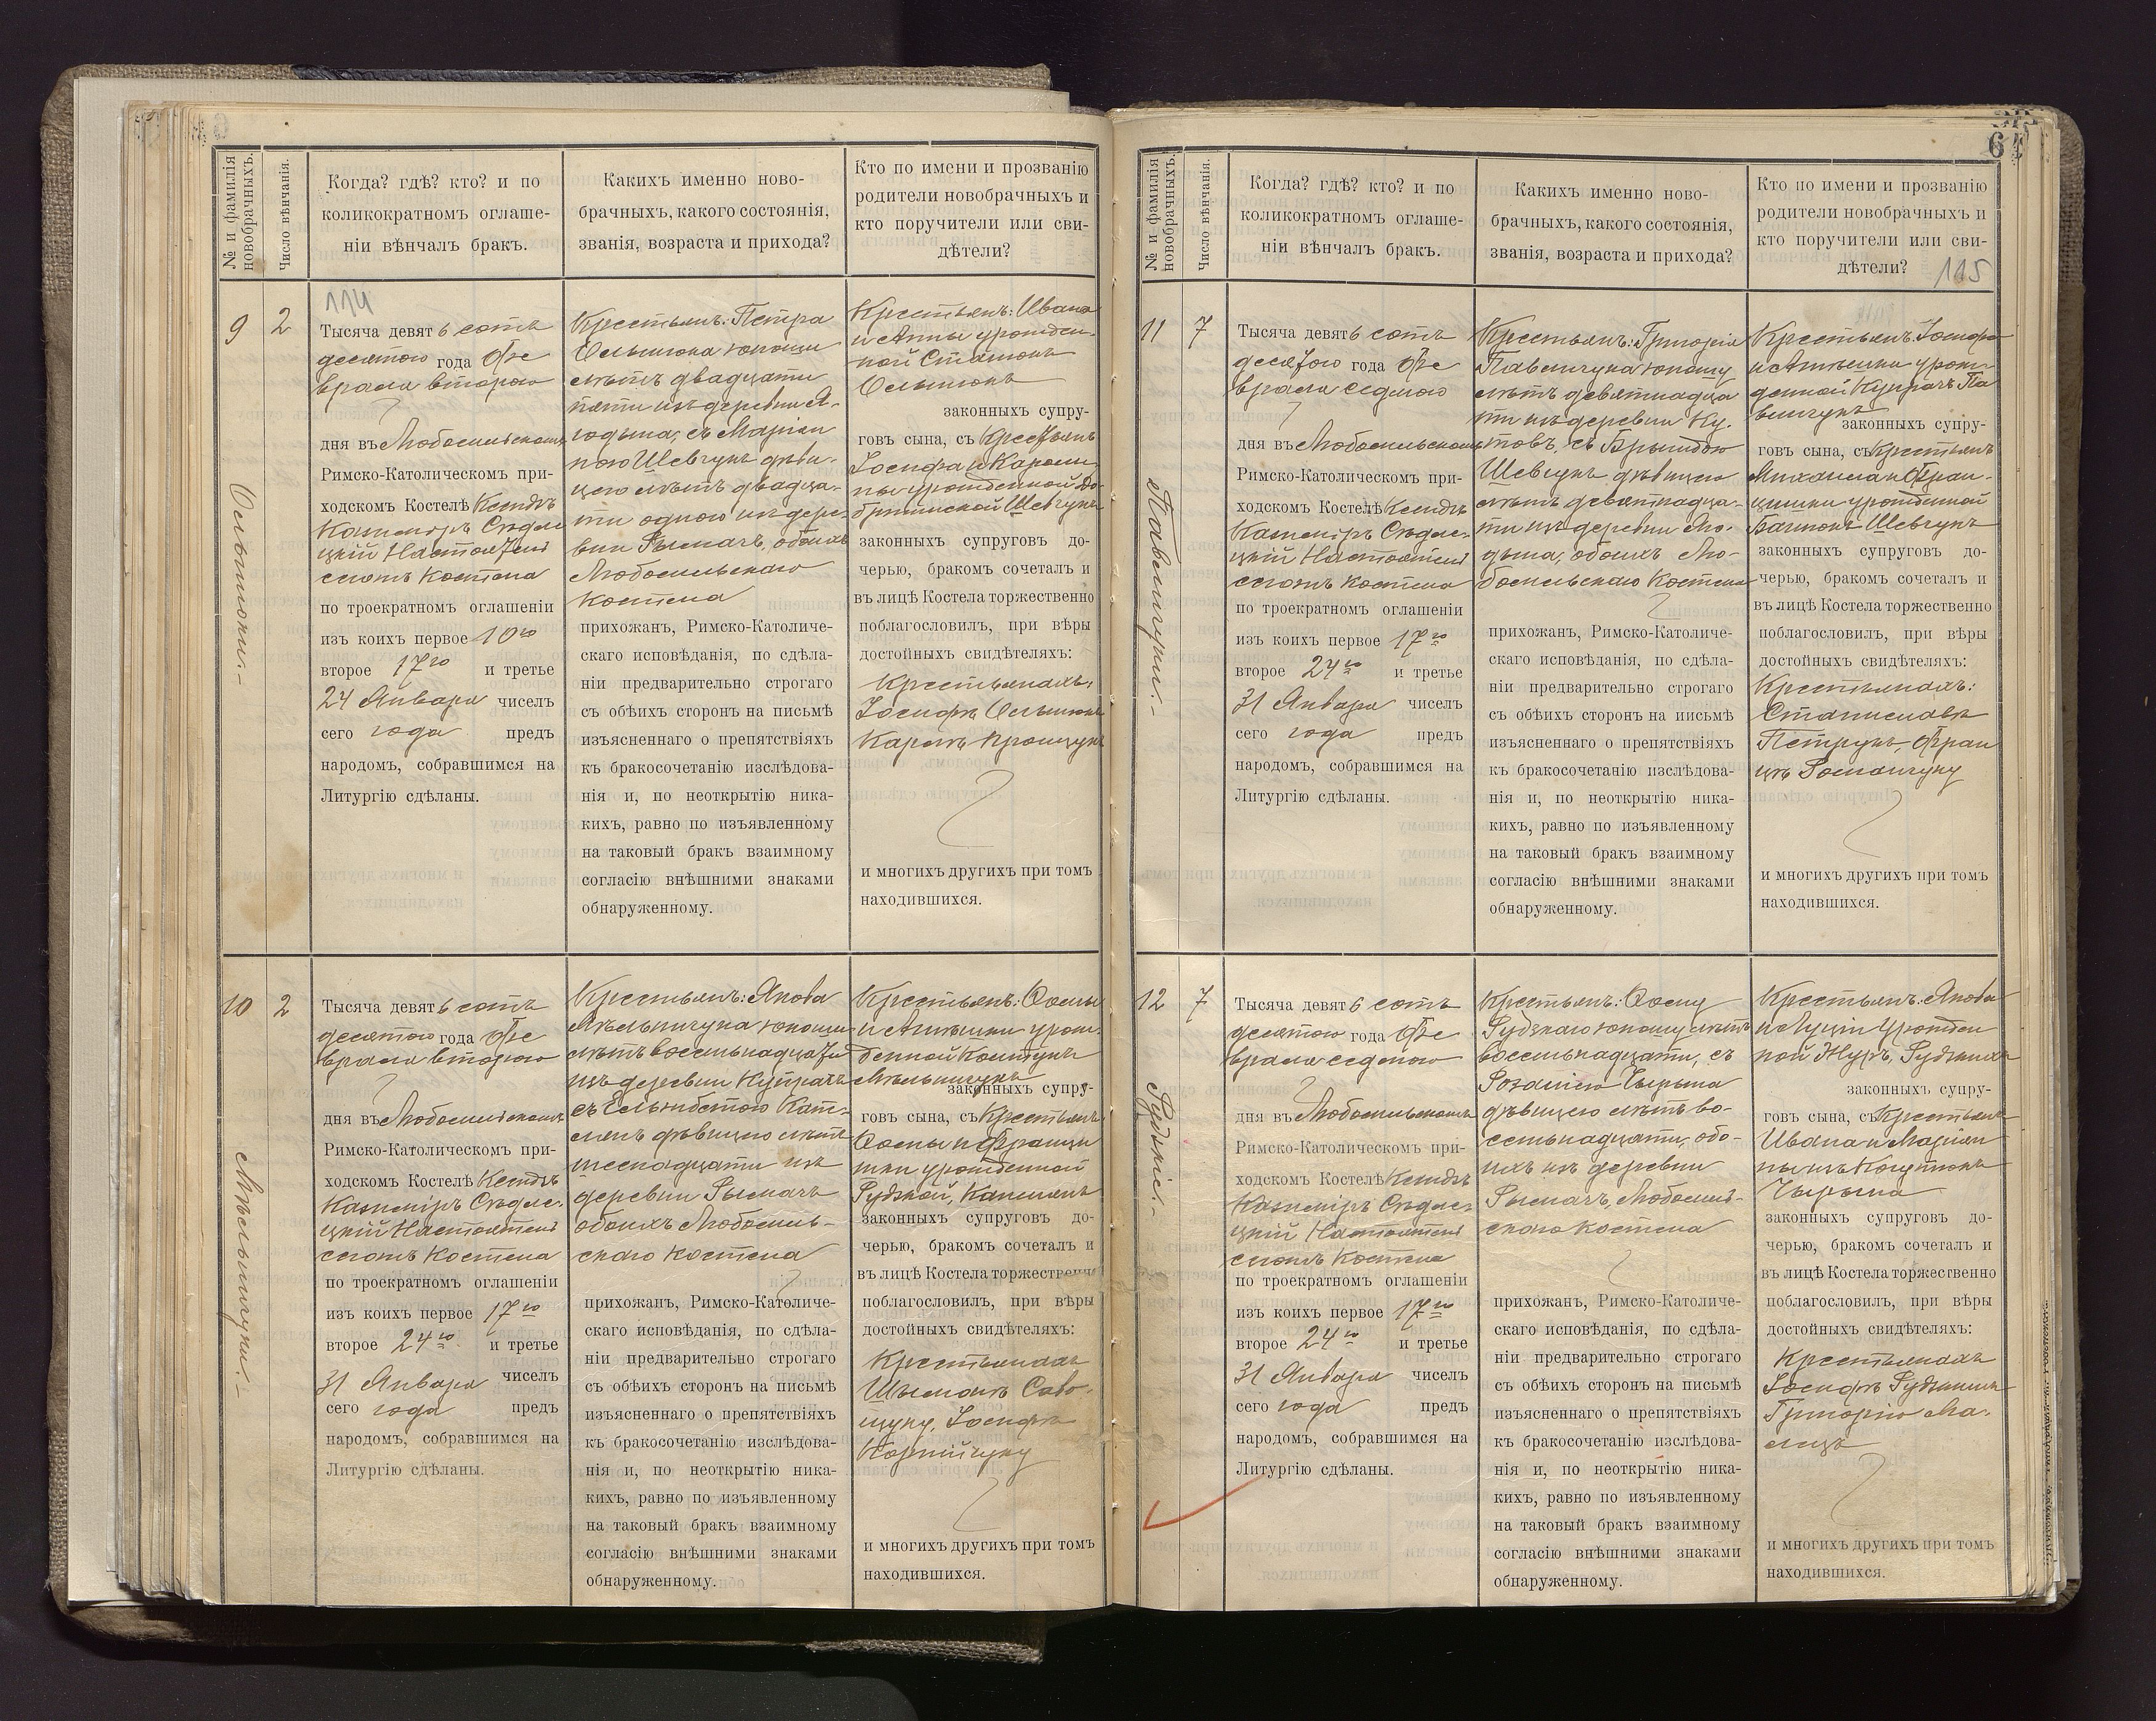 № и фамилія новобрачныхъ.
Число вѣнчанія.
Когда? гдѣ? кто? и по
коликократномъ оглаше-
ніи вѣнчалъ бракъ.
Какихъ именно ново-
брачныхъ, какого состоянія,
званія, возраста и прихода?
Кто по имени и прозванію
родители новобрачныхъ и
кто поручители или сви-
дѣтели?
9
2
114
Тысяча девят6 сотъ
десятого года Фе
враля второго
дня въ Любомльскомъ
Римско-Католическомъ при-
ходскомъ Костелѣ Ксендзъ
Казиміръ Сѣдле
цкій Настоятель
сего Костела
по троекратномъ оглашеніи
изъ коихъ первое 10го
второе 17го и третье
24 Января чиселъ
сего года предъ
народомъ, собравшимся на
Литургію сдѣланы.
Крестьянъ: Петра
юношу
лѣтъ двадцати
пяти изъ деревни Я-
годына, съ Маріян
ною Шевчукъ дѣви-
цею лѣтъ двадца-
ти одного изъ дере
вни Рымачъ, обоихъ
Любомльскаго
Костела
прихожанъ, Римско-Католиче-
скаго исповѣданія, по сдѣла-
ніи предварительно строгаго
съ обѣихъ сторонъ на письмѣ
изъясненнаго о препятствіяхъ
къ бракосочетанію изслѣдова-
нія и, по неоткрытію ника-
кихъ, равно по изъявленному
на таковый бракъ взаимному
согласію внѣшними знаками
обнаруженному.
Крестьянъ: Ивана
и Анны урожден-
ной
законныхъ супру-
говъ сына, съ Крестьянъ
Іосифа и Кароли
ны урожденной До-
Шевчукъ
законныхъ супруговъ до-
черью, бракомъ сочеталъ и
въ лицѣ Костела торжественно
поблагословилъ, при вѣры
достойныхъ свидѣтеляхъ:
Крестьянахъ:
Іосифъ
Кароль
и многихъ другихъ при томъ
находившихся.
10
2
Мѣльничуки.
Тысяча девят6 сотъ
десятого года Фе
враля второго
дня въ Любомльскомъ
Римско-Католическомъ при-
ходскомъ Костелѣ Ксендзъ
Казиміръ Сѣдле-
цкій Настоятель
сего Костела
по троекратномъ оглашеніи
изъ коихъ первое 17го
второе 24го и третье
31 Января чиселъ
сего года предъ
народомъ, собравшимся на
Литургію сдѣланы.
Крестьянъ: Якова
Мѣльничука юношу
лѣтъ восемьнадцати
изъ деревни
съ Ельжбетою Кап-
лянъ дѣвицею лѣтъ
шеснадцати изъ
деревни Рымачъ
обоихъ Любомль-
скаго Костела
прихожанъ, Римско-Католиче-
скаго исповѣданія, по сдѣла-
ніи предварительно строгаго
съ обѣихъ сторонъ на письмѣ
изъясненнаго о препятствіяхъ
къ бракосочетанію изслѣдова-
нія и, по неоткрытію ника-
кихъ, равно по изъявленному
на таковый бракъ взаимному
согласію внѣшними знаками
обнаруженному.
Крестьянъ: Осипа
и Агнѣшки урож-
денной Контукъ
Мѣльничукъ
законныхъ супру-
говъ сына, съ Крестьянъ
Осипа и Францы
шки урожденной
Рудзкой, Каплянъ
законныхъ супруговъ до-
черью, бракомъ сочеталъ и
въ лицѣ Костела торжественно
поблагословилъ, при вѣры
достойныхъ свидѣтеляхъ:
Крестьянахъ
Шымонъ Саво-
щуку, Іосифъ
Корнійчуку
и многихъ другихъ при томъ
находившихся.
64
№ и фамилія новобрачныхъ.
Число вѣнчанія.
Когда? гдѣ? кто? и по
коликократномъ оглаше-
ніи вѣнчалъ бракъ.
Какихъ именно ново-
брачныхъ, какого состоянія,
званія, возраста и прихода?
Кто по имени и прозванію
родители новобрачныхъ и
кто поручители или сви-
дѣтели?
115
11
7
Павельчуки.
Тысяча девят6 сотъ
десятого года Фе
враля седмого
дня въ Любомльскомъ
Римско-Католическомъ при-
ходскомъ Костелѣ Ксендзъ
Казиміръ Сѣдле-
цкій Настоятель
сего Костела
по троекратномъ оглашеніи
изъ коихъ первое 17го
второе 24го и третье
31 Января чиселъ
сего года предъ
народомъ, собравшимся на
Литургію сдѣланы.
Крестьянъ: Григорія
Павельчука юношу
лѣтъ девятнадца
ти изъ деревни Ку-
товъ, съ
Шевчукъ дѣвицею
лѣтъ девятнадца-
ти изъ деревни Яго-
дына, обоихъ Лю-
бомльскаго Костела
прихожанъ, Римско-Католиче-
скаго исповѣданія, по сдѣла-
ніи предварительно строгаго
съ обѣихъ сторонъ на письмѣ
изъясненнаго о препятствіяхъ
къ бракосочетанію изслѣдова-
нія и, по неоткрытію ника-
кихъ, равно по изъявленному
на таковый бракъ взаимному
согласію внѣшними знаками
обнаруженному.
Крестьянъ: Іосифа
и Агнѣшки урож-
денной Па
вельчукъ
законныхъ супру-
говъ сына, съ Крестьянъ
Михаила и Фран-
цишки урожденной
Шевчукъ
законныхъ супруговъ до-
черью, бракомъ сочеталъ и
въ лицѣ Костела торжественно
поблагословилъ, при вѣры
достойныхъ свидѣтеляхъ:
Крестьянахъ:
Станиславъ
Петрукъ, Фран
цъ Романчуку
и многихъ другихъ при томъ
находившихся.
12
7
Рудзкіе.
Тысяча девят6 сотъ
десятого года Фе
враля седмого
дня въ Любомльскомъ
Римско-Католическомъ при-
ходскомъ Костелѣ Ксендзъ
Казиміръ Сѣдле-
цкій Настоятель
сего Костела
по троекратномъ оглашеніи
изъ коихъ первое 17го
второе 24го и третье
31 Января чиселъ
сего года предъ
народомъ, собравшимся на
Литургію сдѣланы.
Крестьянъ: Осипу
Рудзкаго юношу лѣтъ
восемьнадцати, съ
Розаліею Чырыма
дѣвицею лѣтъ во-
семьнадцати, обо-
ихъ изъ деревни
Рымачъ, Любомль-
скаго Костела
прихожанъ, Римско-Католиче-
скаго исповѣданія, по сдѣла-
ніи предварительно строгаго
съ обѣихъ сторонъ на письмѣ
изъясненнаго о препятствіяхъ
къ бракосочетанію изслѣдова-
нія и, по неоткрытію ника-
кихъ, равно по изъявленному
на таковый бракъ взаимному
согласію внѣшними знаками
обнаруженному.
Крестьянъ: Якова
и Луціи урожден
ной Жукъ, Рудзкихъ
законныхъ супру-
говъ сына, съ Крестьянъ
Ивана и Маріян
ны изъ
Чырыма
законныхъ супруговъ до-
черью, бракомъ сочеталъ и
въ лицѣ Костела торжественно
поблагословилъ, при вѣры
достойныхъ свидѣтеляхъ:
Крестьянахъ
Іосифъ Рудзкимъ
Григорію
и многихъ другихъ при томъ
находившихся.